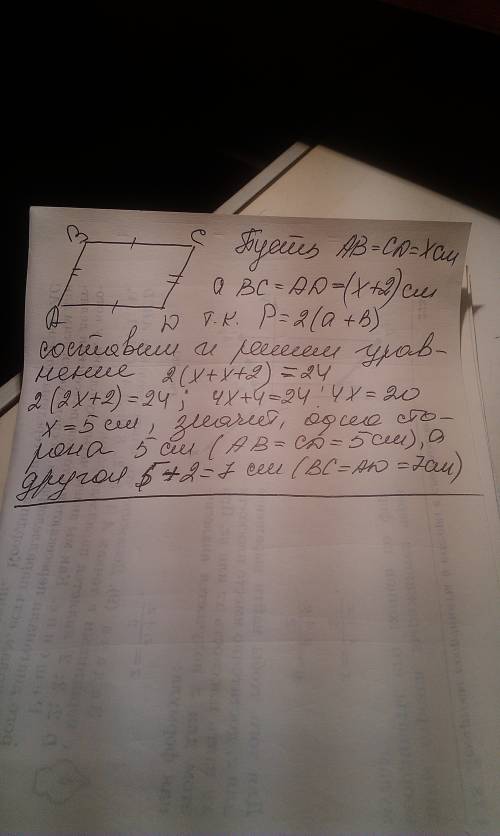 B C
A D
Пусть AB=CD=x см
а BC=AD=(x+2) см
т.к. P=2(a+b)
составим и решим урав-
нение 2(x+x+2)=24
2(2x+2)=24; 4x+4=24; 4x=20
x=5 см, значит, одна сто-
рона 5 см (AB=CD=5см), а
другая 5+2=7 см (BC=AD=7см)